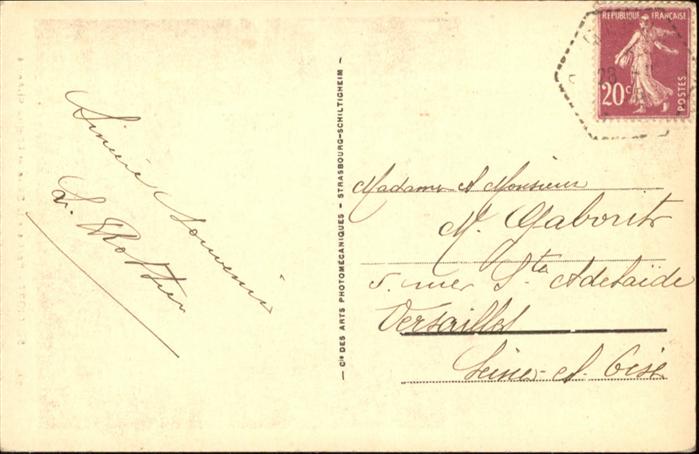 Sincère Souvenir
Cie DES ARTS PHOTOMÉCANIQUES - STRASBOURG-SCHILTIGHEIM
RÉPUBLIQUE FRANÇAISE
20c
POSTES
Madame et Monsieur
M. Gaborit
5. rue Ste Adelaïde
Versailles
Seine-et-Oise